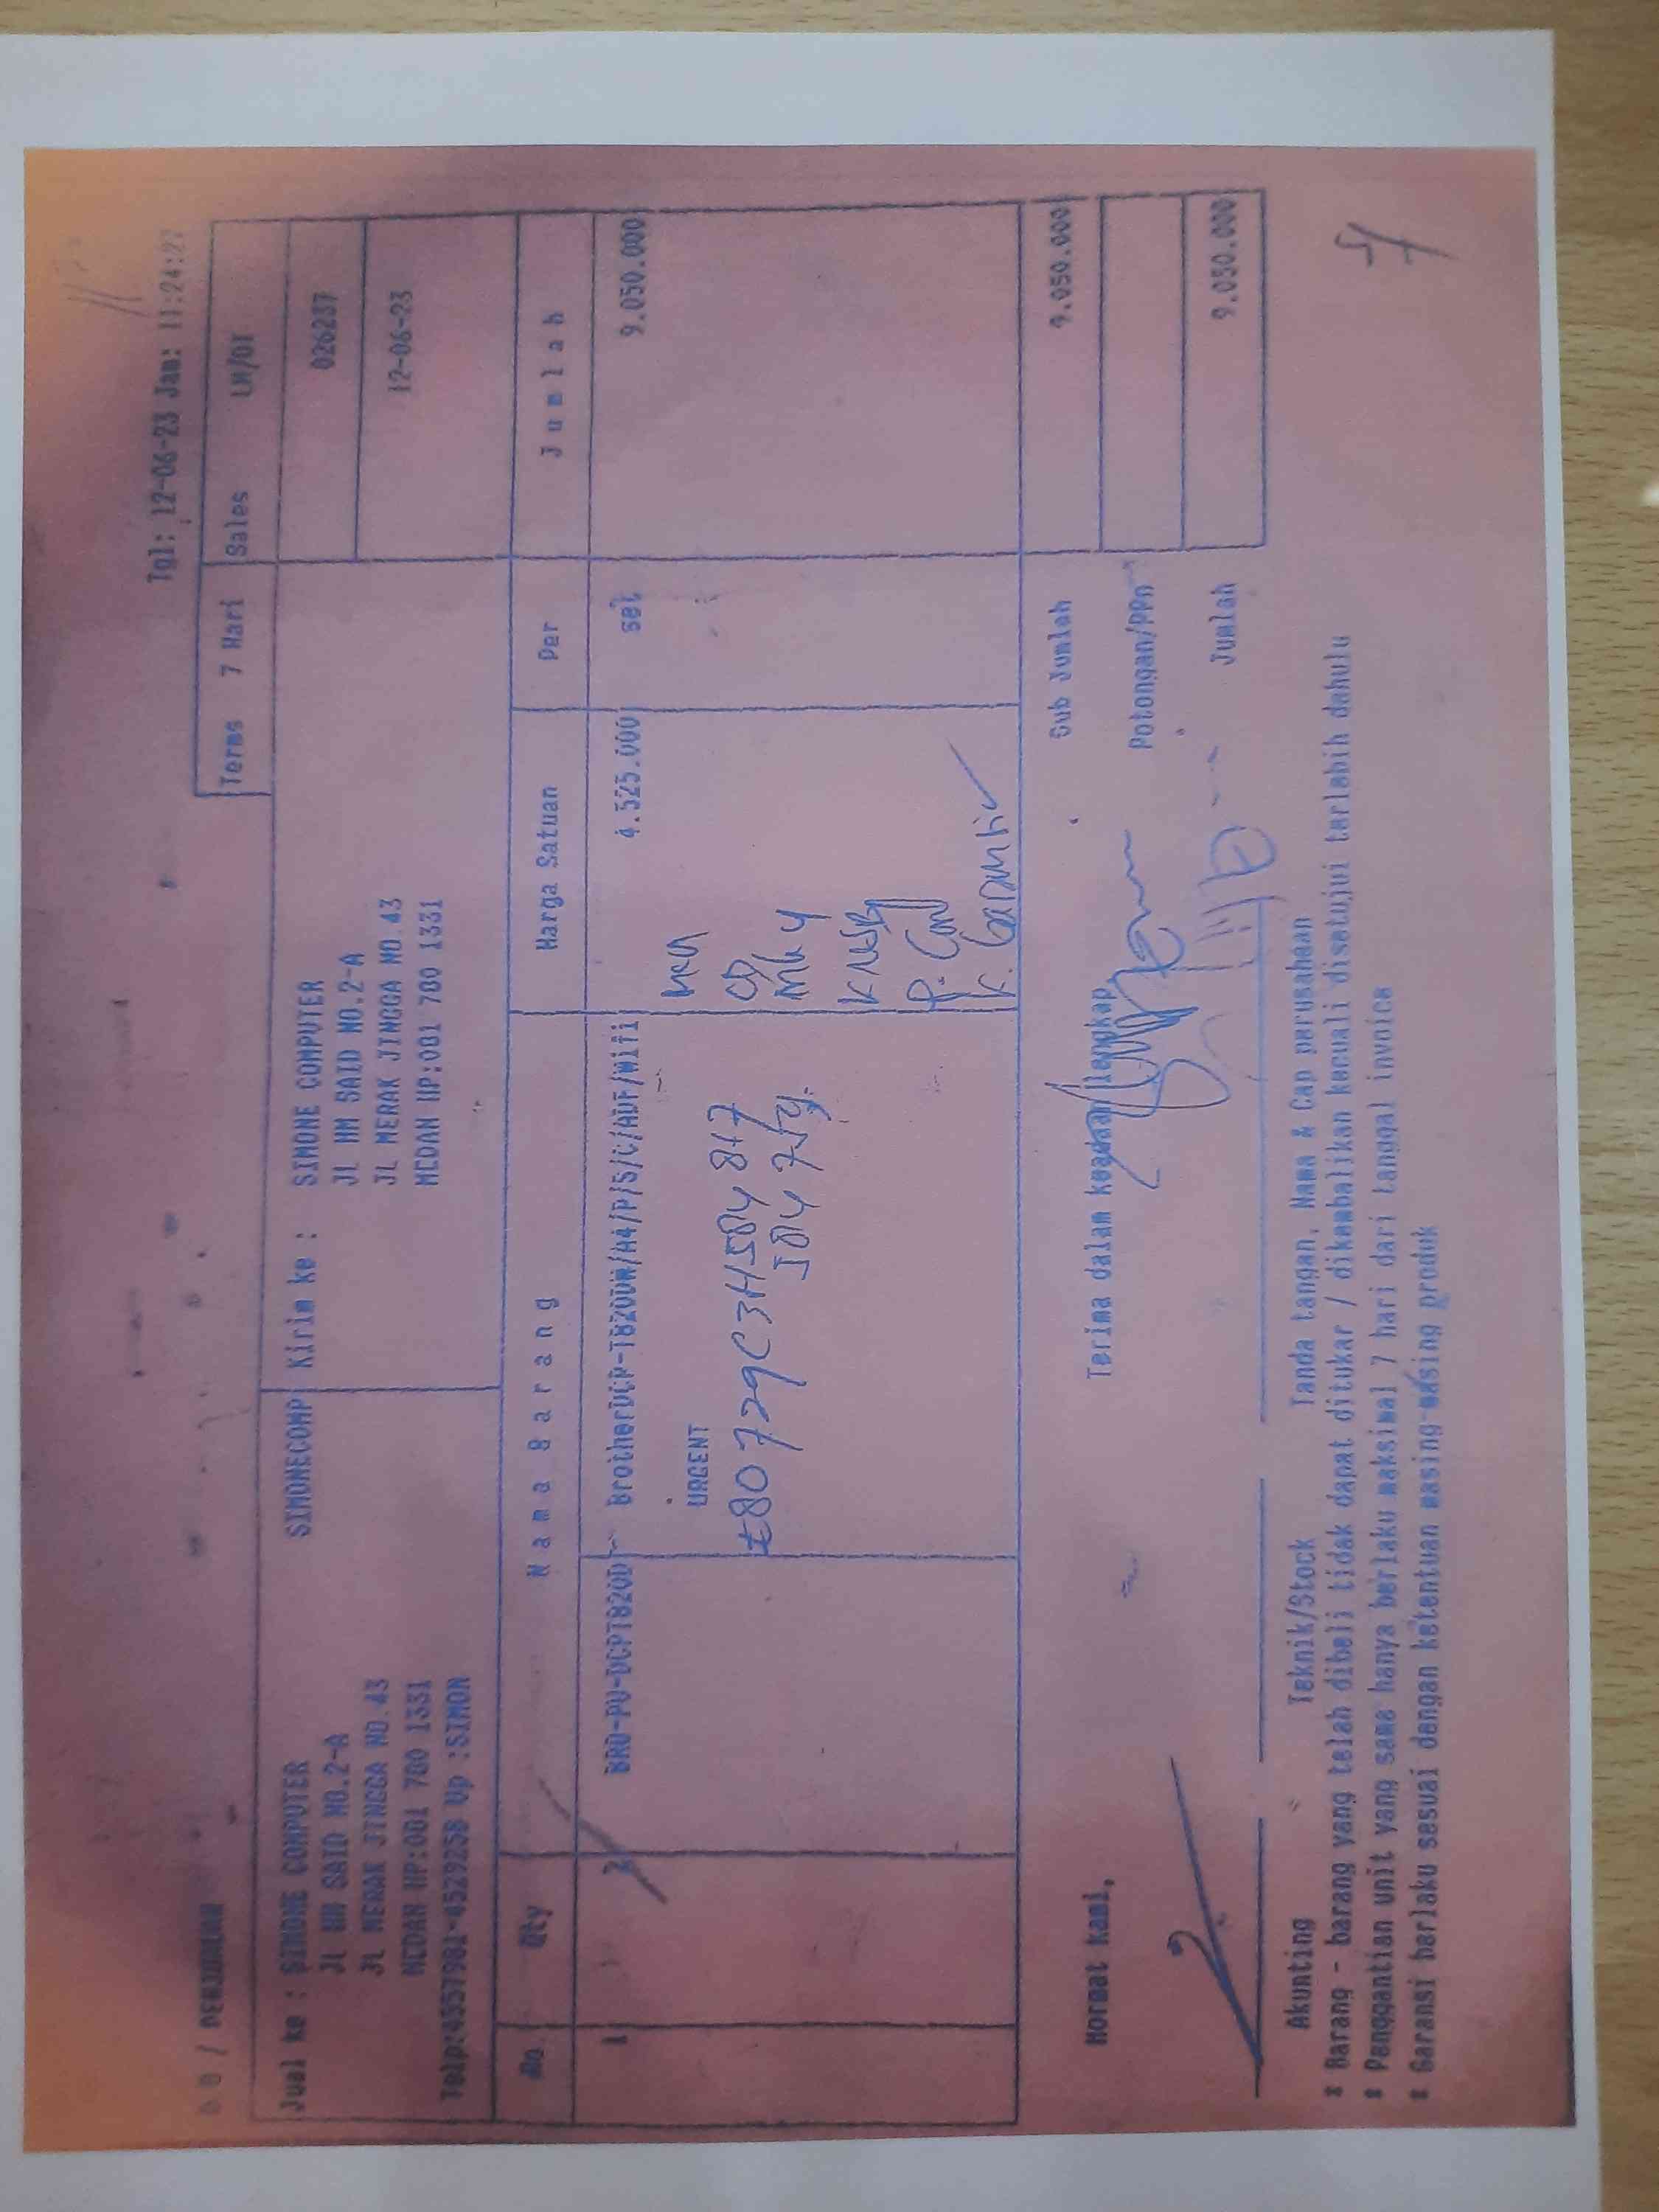 Tgl: 12-06-23 Jam: 11:24:27
D O / PENJUALAN
Terms 7 Hari Sales LM/OT
Jual ke : SIMONE COMPUTER SIMONECOMP Kirim ke : SIMONE COMPUTER 026237
JL HM SAID NO.2-A JL HM SAID NO.2-A
JL MERAK JINGGA NO.43 JL MERAK JINGGA NO.43 12-06-23
MEDAN HP:081 780 1331 MEDAN HP:081 780 1331
Telp:4557981-4529258 Up :SIMON
No. Qty Nama Barang Harga Satuan Per Jumlah
1 2 BRO-PU-DCPT820D BrotherDCP-T820DW/A4/P/S/C/ADF/Wifi 4.525.000 set 9.050.000
URGENT
E80729C3H584817
K. Garansi
Sub Jumlah 9.050.000
Hormat kami, Terima dalam keadaan lengkap
Potongan/PPn
Jumlah 9.050.000
Akunting Teknik/Stock Tanda tangan, Nama & Cap perusahaan
* Barang - barang yang telah dibeli tidak dapat ditukar / dikembalikan kecuali disetujui terlebih dahulu
* Penggantian unit yang sama hanya berlaku maksimal 7 hari dari tanggal invoice
* Garansi berlaku sesuai dengan ketentuan masing-masing produk